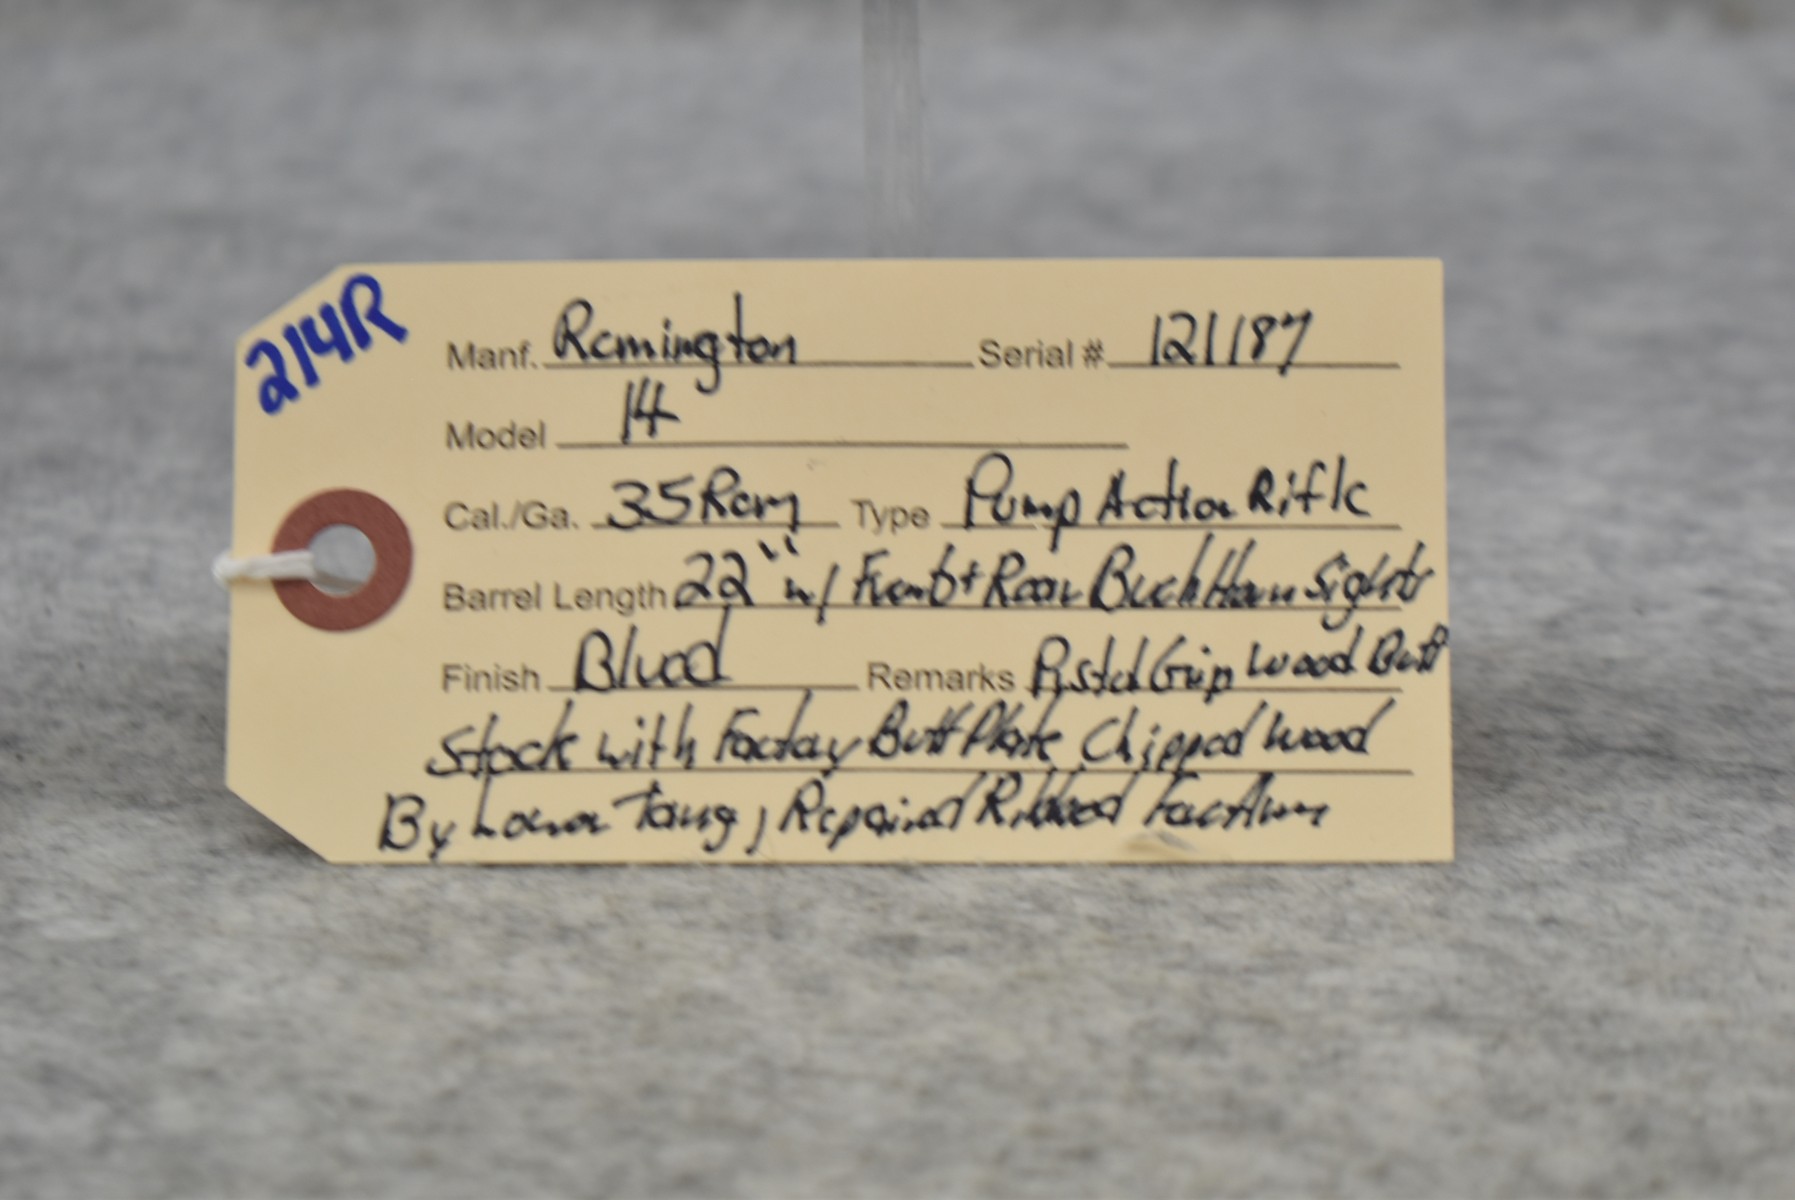 214R
Manf. Remington Serial # 121187
Model 14
Cal./Ga. 35 Rem Type Pump Action Rifle
Barrel Length 22" w/ Front + Rear Buckhorn Sights
Finish Blued Remarks Pistol Grip Wood Butt
Stock with Factory Butt Plate, Chipped Wood
By Lower Tang, Repaired Ribbed ForeArm